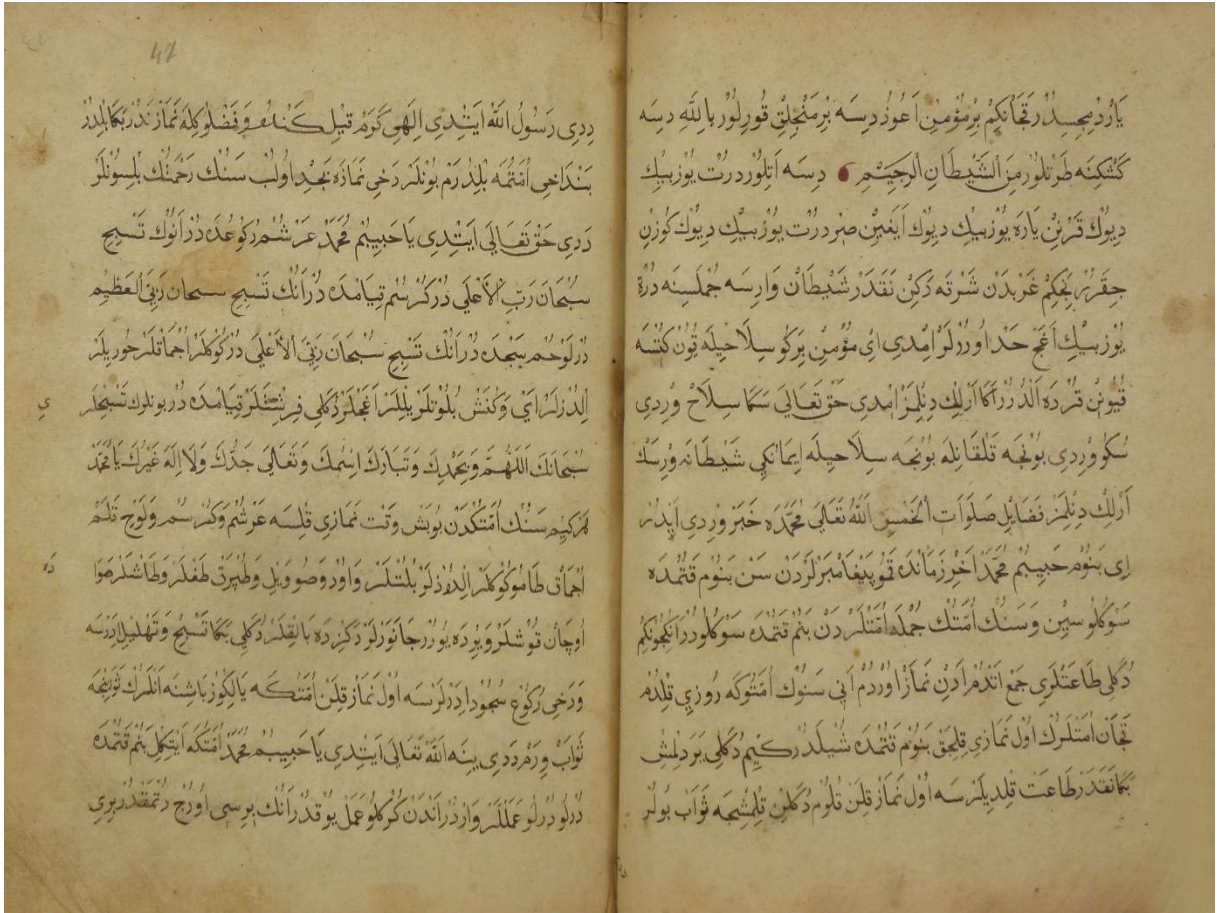 يَارْدُمْجِسِدُرْ قَچَانْكِمْ بِرْ مُؤْمِنْ اَعُوذُ دِسَه بِرْ مَنْجِلِقْ قُورِلُورْ بِاللّٰهِ دِسَه
كَشْكِنَه طَرْتِلُورْ مِنَ الشَّيْطَانِ الرَّجِيْمِ دِسَه اَتِلُورْ دُرْتْ يُوزْ بِيكْ
دِيوُكْ قَرْنِنْ يَارَه يُوزْ بِيكْ دِيوُكْ اَيَغِيْنْ صِرْ دُرْتْ يُوزْ بِيكْ دِيوُكْ كُوزِنْ
چِقَرُرْ نِجَكِمْ غَرْبْدَنْ شَرْقَه دَكِنْ نَقَدَرْ شَيْطَانْ وَارِسَه جُمْلَسِنَه دُرْتْ
يُوزْ بِيكْ اَغَجْ حَدْ اُورُرْلَرْ اِمْدِي اَيْ مُؤْمِنْ بِرْكُو سِلَاحِيلَه قُويُونْ كُتْسَه
قُيُونِنْ قُرْدَه اَلْدُرُرْ اَكَا اَرْلِكْ دِنِلْمَزْ اِمْدِي حَقْ تَعَالَي سَكَا سِلَاحْ وِرْدِي
سُكُو وِرْدِي بُونْجَه قَلْقَانِلَه بُونْجَه سِلَاحِيلَه اِيمَانْكِي شَيْطَانَه وِرْسَكْ
اَرْلِكْ دِنِلْمَزْ فَضَايِلِ صَلَوَاتِ الْخَمْسِ اَللّٰهُ تَعَالَي مُحَمَّدَه خَبَرْ وِرْدِي اَيْدُرْ
اِي بَنُومْ حَبِيبِمْ مُحَمَّدْ اَخِرْ زَمَانْدَه قَمُو پَيْغَامْبَرْلَرْدَنْ سَنْ بَنُومْ قَتُمْدَه
سَوْكُلُو سِيْنْ وَسَنُكْ اُمَّتُكْ جُمْلَه اُمَّتْلَرْدَنْ بَنِمْ قَتُمْدَه سَوْكُلُودُرْ اَنِكْجُونْكِمْ
دُكَلِي طَاعَتْلَرِي جَمْعْ اَتْدُمْ اَدِنْ نَمَازْ اُورْدُمْ اَنِي سَنُوكْ اُمَّتُوكَه رُوزِي قِلْدُمْ
قَچَانْ اُمَّتْلَرُكْ اُولْ نَمَازِي قِلِجَقْ بَنُومْ قَتُمْدَه شُيْلَدُرْ كِيمْ دُكَلِي يَرَدِلْمِشْ
بَكَا نَقَدَرْ طَاعَتْ قِلْدِيلَرْسَه اُولْ نَمَازْ قِلَنْ قُلُومْ دُكَلِنْ قِلْمِشْجَه ثَوَابْ بُولُرْ
47
دِدِي رَسُولُ اللّٰهْ اَيِتْدِي اِلٰهِي كَرَمْ قِيلْ وَفَضْلُوكِلَه نَمَازْ نَدُرْ بَكَا بِلْدُرْ
بَنْدَاخِي اُمَّتُمَه بِلْدُرَمْ بُونْلَرْ دَخِي نَمَازَه بَجِدْ اُولُبْ سَنُكْ رَحْمَتُكْ بِلْسُونْلَرْ
دَدِي حَقْ تَعَالَي اَيِتْدِي يَا حَبِيبُمْ مُحَمَّدْ عَرْشُمْ رُكُوعْدَه دُرْ اَنُوكْ تَسْبِيحِ
سُبْحَانَ رَبِّيَ الْاَعْلَي دُرْ كُرْسُمْ قِيَامْدَه دُرْ اَنُكْ تَسْبِيحِ سبحان رَبِّيَ الْعَظِيمِ
دُرْ لَوْحُمْ سَجْدَه دُرْ اَنُكْ تَسْبِيحِ سُبْحَانَ رَبِّيَ الْاَعْلَي دُرْ كُوكْلَرْ اُچْمَاقْلَرْ حُورِيلَرْ
اِلْدُزْلَرْ اَيْ وَكُنَشْ بُلُوتْلَرْ يِلْلَرْ اَغَجْلَرْ دُكَلِي فِرِشْتَلَرْ قِيَامْدَه دُرْ بُونْلَروُكْ تَسْبِيحْلَرِ
سُبْحَانَكَ اللّٰهُمَّ وَبِحَمْدِكَ وَتَبَارَكَ اسْمُكَ وَتَعَالَي جَدُّكَ وَلَا اِلٰهَ غَيْرُكَ يَا مُحَمَّدْ
هَرْكِيمْ سَنُكْ اُمَّتُكْدَنْ بُو بَشْ وَقْتْ نَمَازِي قِلْسَه عَرْشُمْ وَكُرْسُمْ وَلَوْحْ قَلَمْ
اُچْمَاقْ طَامُو كُوكْلَرْ اِلْدُزْلَرْ بُلُتْلَرْ وَاوُدْ وَصُو وَيِلْ وَطُپْرَقْ طَغْلَرْ وَطَاشْلَرْ هَوَادَه
اُوچَانْ قُوشْلَرْ وَيِرْدَه يُورُرْ جَانَوَرْلَرْ دَكِزْدَه بَالِقْلَرْ دُكَلِي بَكَا تَسْبِيحْ وَتَهْلِيلْ اِدَرْسَه
وَدَخِي رُكُوعْ سُجُودْ اِدَرْلَرْسَه اُولْ نَمَازْ قِلَنْ اُمَّتُكَه يَالْكُوزْ بَاشِنَه اَنْلَرُكْ ثَوَابِنْجَه
ثَوَابْ وِرَمْ دَدِي يِنَه اَللّٰهُ تَعَالَي اَيِتْدِي يَا حَبِيبُمْ مُحَمَّدْ اُمَّتُكَه اَيِتْكِلْ بَنُمْ قَتُمْدَه
دُرْلُو دُرْلُو عَمَلْلَرْ وَارْدُرْ اَنْدَنْ كُرْكَلُو عَمَلْ يُوقْدُرْ اَنُكْ بِرِسِي اُورُجْ دُتْمَقْدُرْ بِرِي